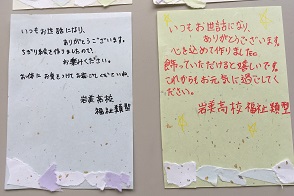 いつもお世話になり、
ありがとうございます。
ちぎり絵で作りましたので、
お使いください。
お体に お気をつけて お過ごしくださいね。
岩美高校
福祉類型
いつもお世話になり、
ありがとうございます。
心を込めて作りました。
飾っていただけると嬉しいです。
これからもお元気に過ごしてく
ださい。
岩美高校 福祉類型